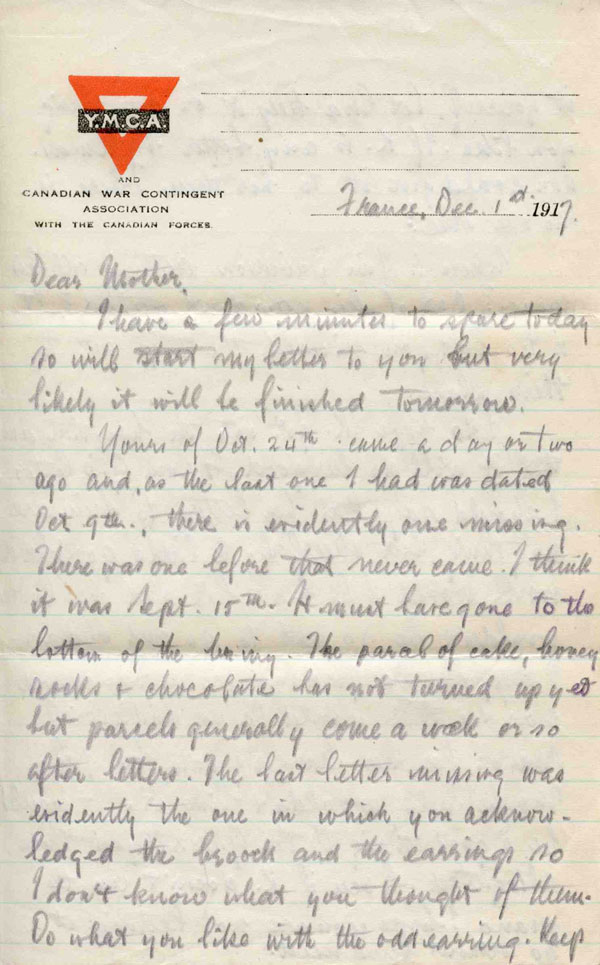 Y.M.C.A.
AND
CANADIAN WAR CONTINGENT
ASSOCIATION
WITH THE CANADIAN FORCES.
France, Dec. 1st. 1917.
Dear Mother,
I have a few minutes to spare today
so will start my letter to you but very
likely it will be finished tomorrow.
Yours of Oct. 24th came a day or two
ago and, as the last one I had was dated
Oct 9th., there is evidently one missing.
There was one before that never came. I think
it was Sept. 15th. It must have gone to the
bottom of the briny. The parcel of cake, honey
socks & chocolate has not turned up yet
but parcels generally come a week or so
after letters. The last letter missing was
evidently the one in which you acknow-
ledged the brooch and the earrings so
I don't know what you thought of them.
Do what you like with the odd earring. Keep